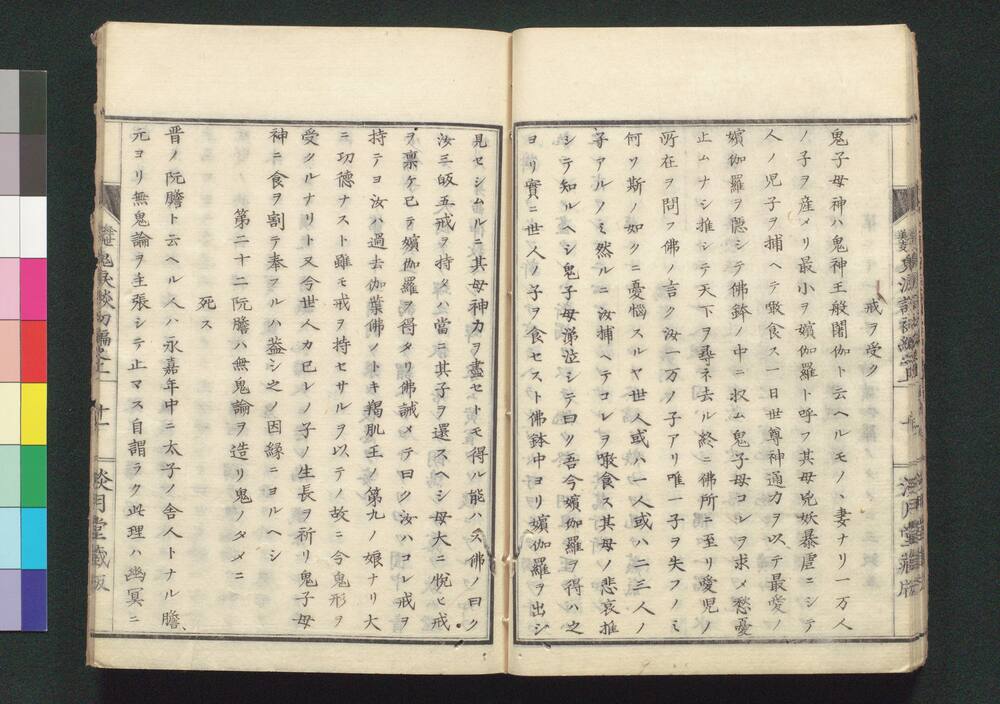 戒ヲ受ク
鬼子母神ハ鬼神王般闍伽ト云ヘルモノヽ妻ナリ一万人
ノ子ヲ産メリ最小ヲ嬪伽羅ト呼フ其母兇妖暴虐ニシテ
人ノ児子ヲ捕ヘテ噉食ス一日世尊神通力ヲ以テ最愛ノ
嬪伽羅ヲ隠シテ佛鉢ノ中ニ収ム鬼子母コレヲ求メ愁憂
止ムナシ推シテ天下ヲ尋ネ去ル終ニ佛所ニ至リ愛児ノ
所在ヲ問フ佛ノ言ク汝一万ノ子アリ唯一子ヲ失フノミ
何ソ斯ノ如クニ憂悩スルヤ世人或ハ一人或ハ二三人ノ
子アルノミ然ルニ汝捕ヘテコレヲ噉食ス其母ノ悲哀推
シテ知ルヘシ鬼子母涕泣シテ曰ク吾今嬪伽羅ヲ得ハ之
ヨリ實ニ世人ノ子ヲ食セスト佛鉢中ヨリ嬪伽羅ヲ出シ
見セシムルニ其母神力ヲ盡セトモ得ル能ハス佛ノ曰ク
汝三皈五戒ヲ持タハ當ニ其子ヲ還スヘシ母大ニ悦ヒ戒
ヲ禀ケ已テ嬪伽羅ヲ得タリ佛誡メテ曰ク汝ハコレ戒ヲ
持テヨ汝ハ過去伽葉佛ノトキ羯肌王ノ第九ノ娘ナリ大
ニ功德ナスト雖モ戒ヲ持セサルヲ以テノ故ニ今鬼形ヲ
受クルナリト又今世人カ已レノ子ノ生長ヲ祈リ鬼子母
神ニ食ヲ割テ奉ツルハ蓋シ之ノ因縁ニヨルヘシ
第二十二阮瞻ハ無鬼論ヲ造リ鬼ノタメニ
死ス
晋ノ阮瞻ト云ヘル人ハ永嘉年中ニ太子ノ舎人トナル瞻
元ヨリ無鬼論ヲ主張シテ止マス自謂ラク此理ハ幽冥ニ
十一